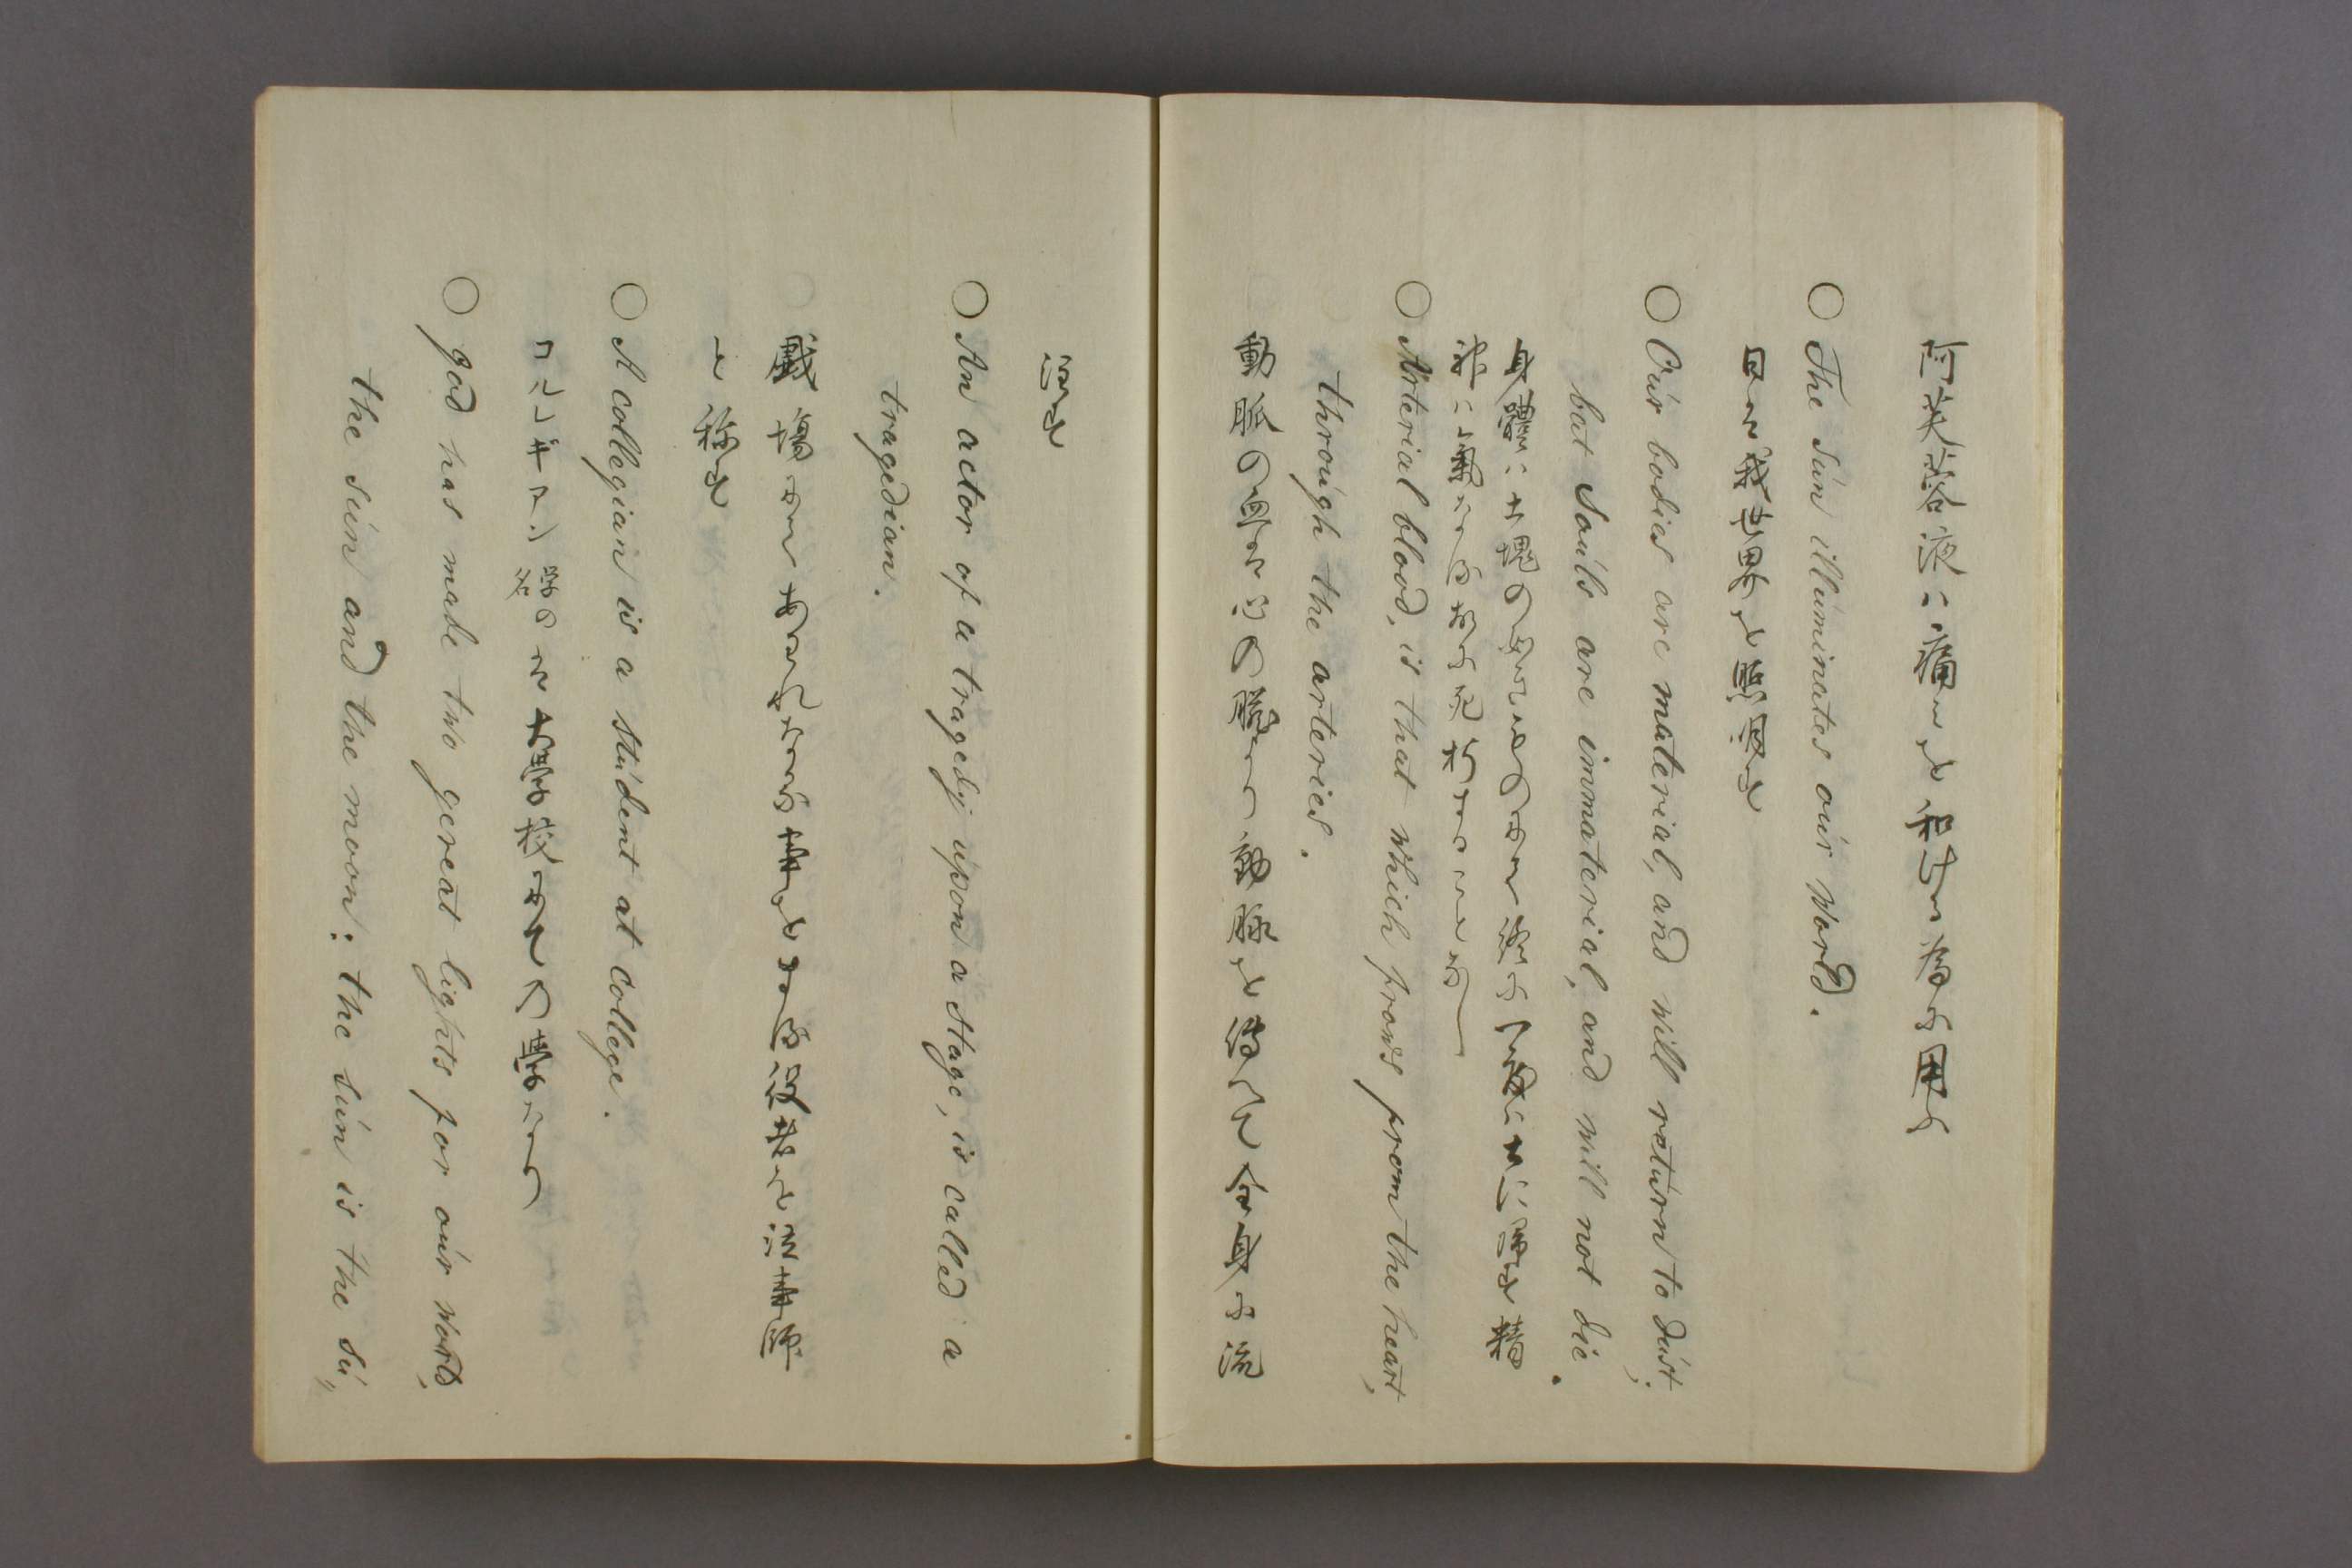 阿芙蓉液ハ痛ミを和ける為に用ふ
○ The sún illúminates oúr world.
日は我世界を照照す
○ Oúr bodies are material, and will retúrn to dúst;
but Soúls are immaterial, and will not die.
身體ハ土塊の如きものにて終に一度ハ土に帰す精
神ハ氣なる故に死することなし
○ Arterial blood, is that which frows from the heart,
throúgh the arteries.
動脈の血は心の臓より動脉を傳へて全身に流
泣す
○ An actor of a tragedy úpon a stage, is called a
tragedian.
戯場にてあはれなる事をする役者を泣事師
と称す
○ A collegian is a stúdent at college.
コルレギアン 学の名 は大學校にての學なり
○ god has made two gereat lights for oúr world,
the sún and the moon: the sún is the sú〃